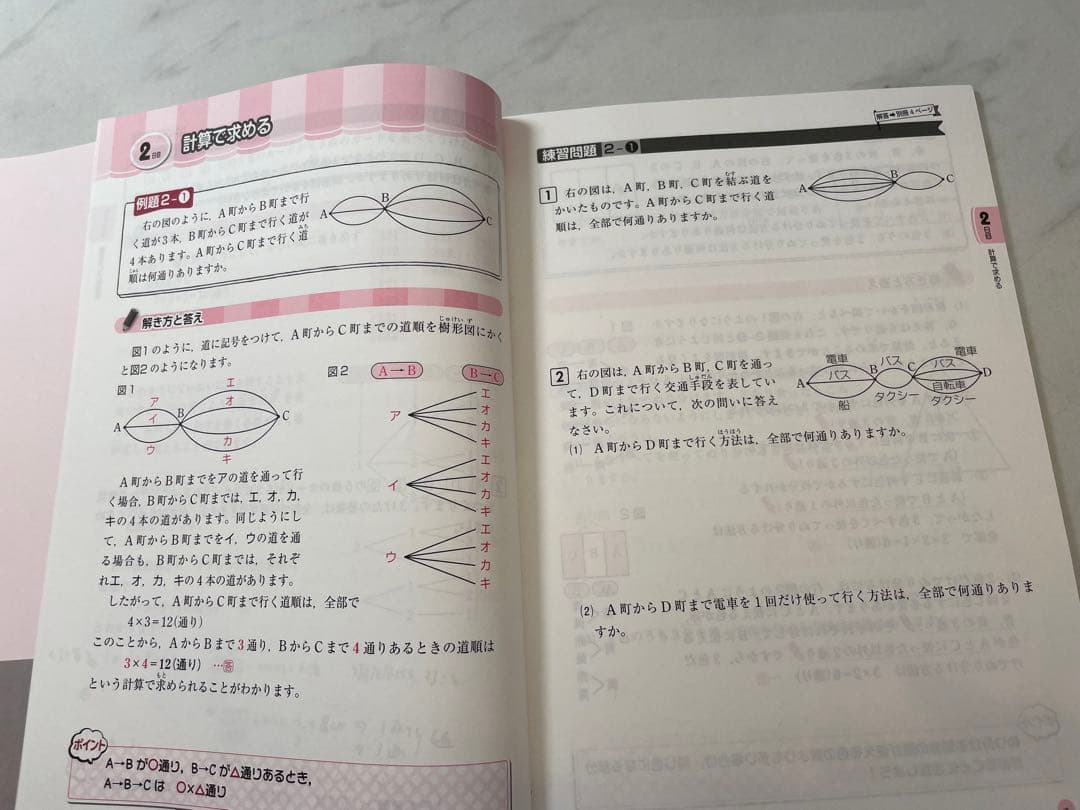 2日目 計算で求める
例題2-❶
右の図のように，A町からB町まで行
く道が3本，B町からC町まで行く道が
4本あります。A町からC町まで行く道
順は何通りありますか。
みち
じゅん
A
B
C
解き方と答え
図1のように，道に記号をつけて，A町からC町までの道順を樹形図にかく
じゅけい ず
と図2のようになります。
図1
エ
ア
オ
イ
B
A
C
カ
ウ
キ
図2
A→B
B→C
ア
エ
オ
カ
キ
イ
エ
オ
カ
キ
ウ
エ
オ
カ
キ
A町からB町までをアの道を通って行
く場合，B町からC町までは，エ，オ，カ，
キの4本の道があります。同じようにし
て，A町からB町までをイ，ウの道を通
る場合も，B町からC町までは，それぞ
れエ，オ，カ，キの4本の道があります。
したがって，A町からC町まで行く道順は，全部で
4×3=12(通り)
このことから，AからBまで3通り，BからCまで4通りあるときの道順は
3×4=12(通り) …答
もと
という計算で求められることがわかります。
ポイント
A→Bが○通り，B→Cが△通りあるとき，
A→B→Cは ○×△通り
解答➡別冊4ページ
練習問題 2-❶
1 右の図は，A町，B町，C町を結ぶ道を
むす
かいたものです。A町からC町まで行く道
順は，全部で何通りありますか。
A
B
C
2日目
計算で求める
2 右の図は，A町からB町，C町を通っ
て，D町まで行く交通手段を表してい
しゅだん
ます。これについて，次の問いに答え
なさい。
電車
バス
船
バス
タクシー
電車
バス
自転車
タクシー
A
B
C
D
(1) A町からD町まで行く方法は，全部で何通りありますか。
ほうほう
(2) A町からD町まで電車を1回だけ使って行く方法は，全部で何通りありま
すか。